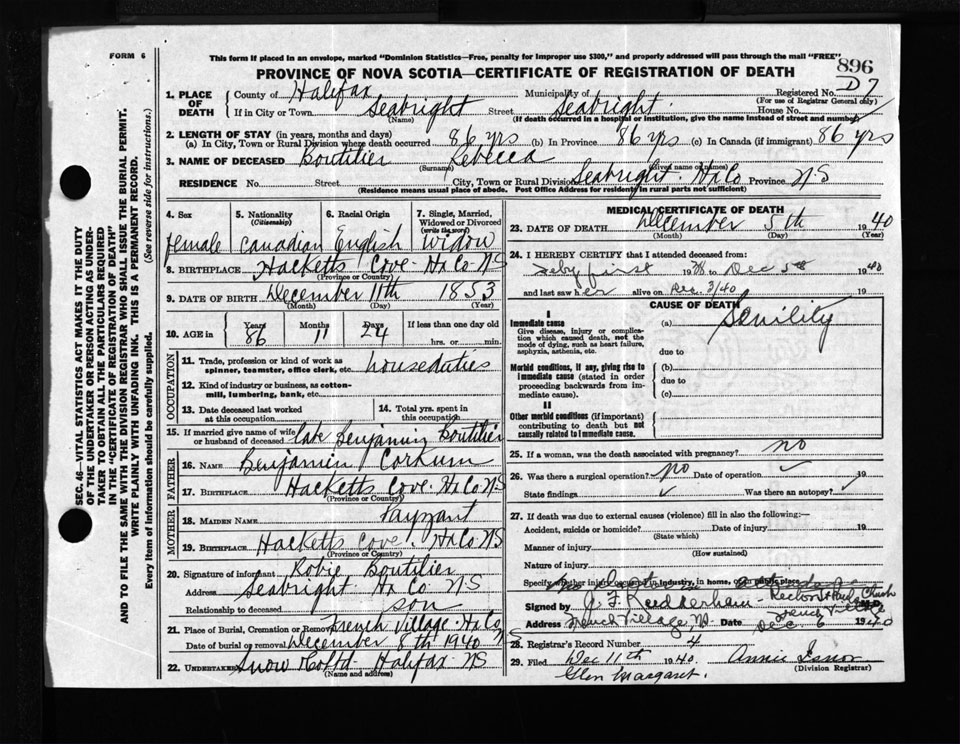 FORM 6
This form if placed in an envelope, marked "Dominion Statistics—Free, penalty for improper use $300," and properly addressed will pass through the mail "FREE"
896
PROVINCE OF NOVA SCOTIA—CERTIFICATE OF REGISTRATION OF DEATH
D 7
1. PLACE OF DEATH
County of Halifax Municipality of Registered No.
(For use of Registrar General only)
If in City or Town Seabright Street Seabright. House No.
(Name) (If death occurred in a hospital or institution, give the name instead of street and number)
2. LENGTH OF STAY (in years, months and days)
(a) In City, Town or Rural Division where death occurred 86 yrs (b) In Province 86 yrs (c) In Canada (if immigrant) 86 yrs
3. NAME OF DECEASED Boutilier Rebecca
(Surname) (Given name or names)
RESIDENCE No. Street City, Town or Rural Division Seabright. Hx Co Province N.S
(Residence means usual place of abode. Post Office Address for residents in rural parts not sufficient)
4. Sex female
5. Nationality (Citizenship) Canadian
6. Racial Origin English
7. Single, Married, Widowed or Divorced (write the word) Widow
8. BIRTHPLACE Hacketts Cove. Hx Co. N.S
(Province or Country)
9. DATE OF BIRTH December 11th 1853
(Month) (Day) (Year)
10. AGE in Years 86 Months 11 Days 24 If less than one day old hrs. or min.
OCCUPATION
11. Trade, profession or kind of work as spinner, teamster, office clerk, etc. houseduties
12. Kind of industry or business, as cotton-mill, lumbering, bank, etc.
13. Date deceased last worked at this occupation
14. Total yrs. spent in this occupation
15. If married give name of wife or husband of deceased late Benjamin Boutilier
FATHER
16. NAME Benjamin Corkum
17. BIRTHPLACE Hacketts Cove. Hx Co. N.S
(Province or Country)
MOTHER
18. MAIDEN NAME Payzant
19. BIRTHPLACE Hacketts Cove. Hx Co. N.S
(Province or Country)
20. Signature of informant Robie Boutilier
Address Seabright. Hx Co. N.S
Relationship to deceased son
21. Place of Burial, Cremation or Removal French Village. Hx Co
Date of burial or removal December 8th 1940
22. UNDERTAKER Snow Co Ltd. Halifax. NS
(Name and address)
MEDICAL CERTIFICATE OF DEATH
23. DATE OF DEATH December 5th 1940
(Month) (Day) (Year)
24. I HEREBY CERTIFY that I attended deceased from:
19 to Dec 5th 1940
and last saw her alive on Dec. 3/40 19
CAUSE OF DEATH
I
Immediate cause (a) Senility
Give disease, injury or complication which caused death, not the mode of dying, such as heart failure, asphyxia, asthenia, etc.
due to
Morbid conditions, if any, giving rise to immediate cause (stated in order proceeding backwards from immediate cause).
(b)
due to
(c)
II
Other morbid conditions (if important) contributing to death but not causally related to immediate cause.
25. If a woman, was the death associated with pregnancy? no
26. Was there a surgical operation? no Date of operation 19
State findings Was there an autopsy?
27. If death was due to external causes (violence) fill in also the following:—
Accident, suicide or homicide? Date of injury 19
(State which)
Manner of injury
(How sustained)
Nature of injury
Specify whether injury occurred in industry, in home, or in public place
Signed by Rector St Paul's Church
Address French Village NS Date Dec. 6 1940
French Village
28. Registrar's Record Number 4
29. Filed Dec 11th 1940. Annie
(Division Registrar)
Glen Margaret.
SEC. 46—VITAL STATISTICS ACT MAKES IT THE DUTY
OF THE UNDERTAKER OR PERSON ACTING AS UNDER-
TAKER TO OBTAIN ALL THE PARTICULARS REQUIRED
IN THE "CERTIFICATE OF REGISTRATION OF DEATH"
AND TO FILE THE SAME WITH THE DIVISION REGISTRAR WHO SHALL ISSUE THE BURIAL PERMIT.
WRITE PLAINLY WITH UNFADING INK. THIS IS A PERMANENT RECORD.
Every item of information should be carefully supplied. (See reverse side for instructions.)